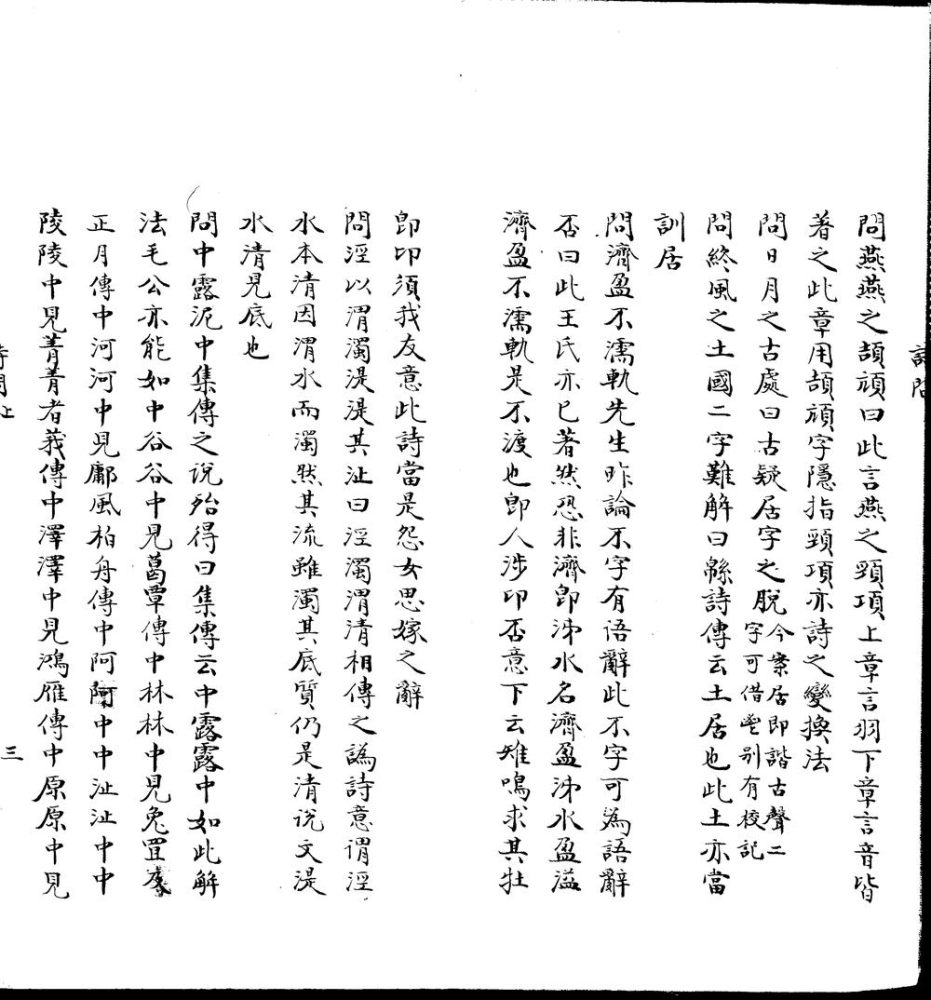 問燕燕之頡頏曰此言燕之頸項上章言羽下章言音皆
著之此章用頡頏字隱指頸項亦詩之變換法
問日月之古處曰古疑居字之脫今案居即諧古聲二字可借㘴别有校記
問終風之土國二字難解曰緜詩傳云土居也此土亦當
訓居
問濟盈不濡軌先生昨論不字有语辭此不字可為語辭
否曰此王氏亦已著然恐非濟卽泲水名濟盈泲水盈溢
濟盈不濡軌是不渡也卽人涉卬否意下云雉鳴求其牡
卽卬須我友意此詩當是怨女思嫁之辭
問涇以渭濁湜湜其沚曰涇濁渭清相傳之譌詩意谓涇
水本清因渭水而濁然其流雖濁其底質仍是清说文湜
水清見底也
問中露泥中集傳之说殆得曰集傳云中露露中如此解
法毛公亦能如中谷谷中見葛覃傳中林林中見兔罝傳
正月傳中河河中見鄘風柏舟傳中阿阿中中沚沚中中
陵陵中見菁菁者莪傳中澤澤中見鴻雁傳中原原中見
三